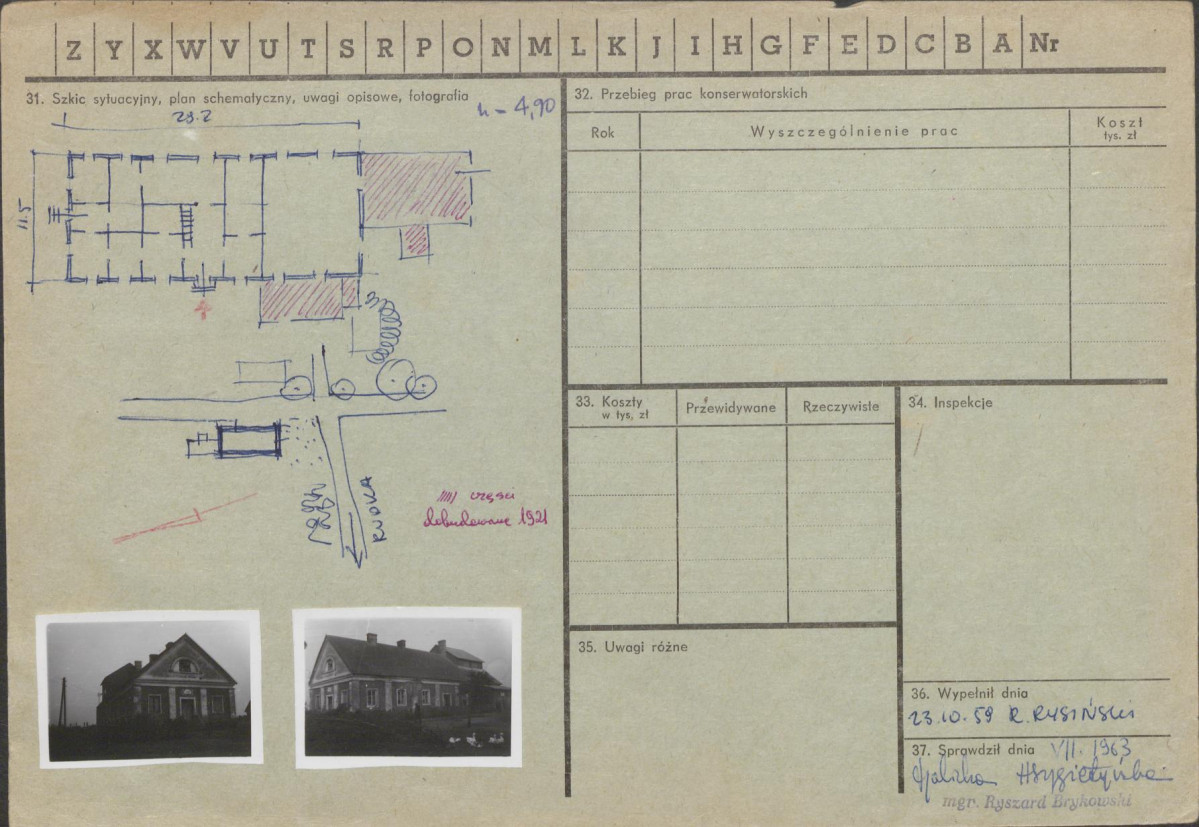 Z Y X W V U T S R P O N M L K J I H G F E D C B A Nr
31. Szkic sytuacyjny, plan schematyczny, uwagi opisowe, fotografia
h = 4,90
23.2
11.5
RUDKA
//// części
dobudowane 1921
32. Przebieg prac konserwatorskich
Rok
Wyszczególnienie prac
Koszt
tys. zł
33. Koszty
w tys. zł
Przewidywane
Rzeczywiste
34. Inspekcje
35. Uwagi różne
36. Wypełnił dnia
23.10.59 R. RYSIŃSKI
37. Sprawdził dnia VII. 1963
mgr. Ryszard Brykowski